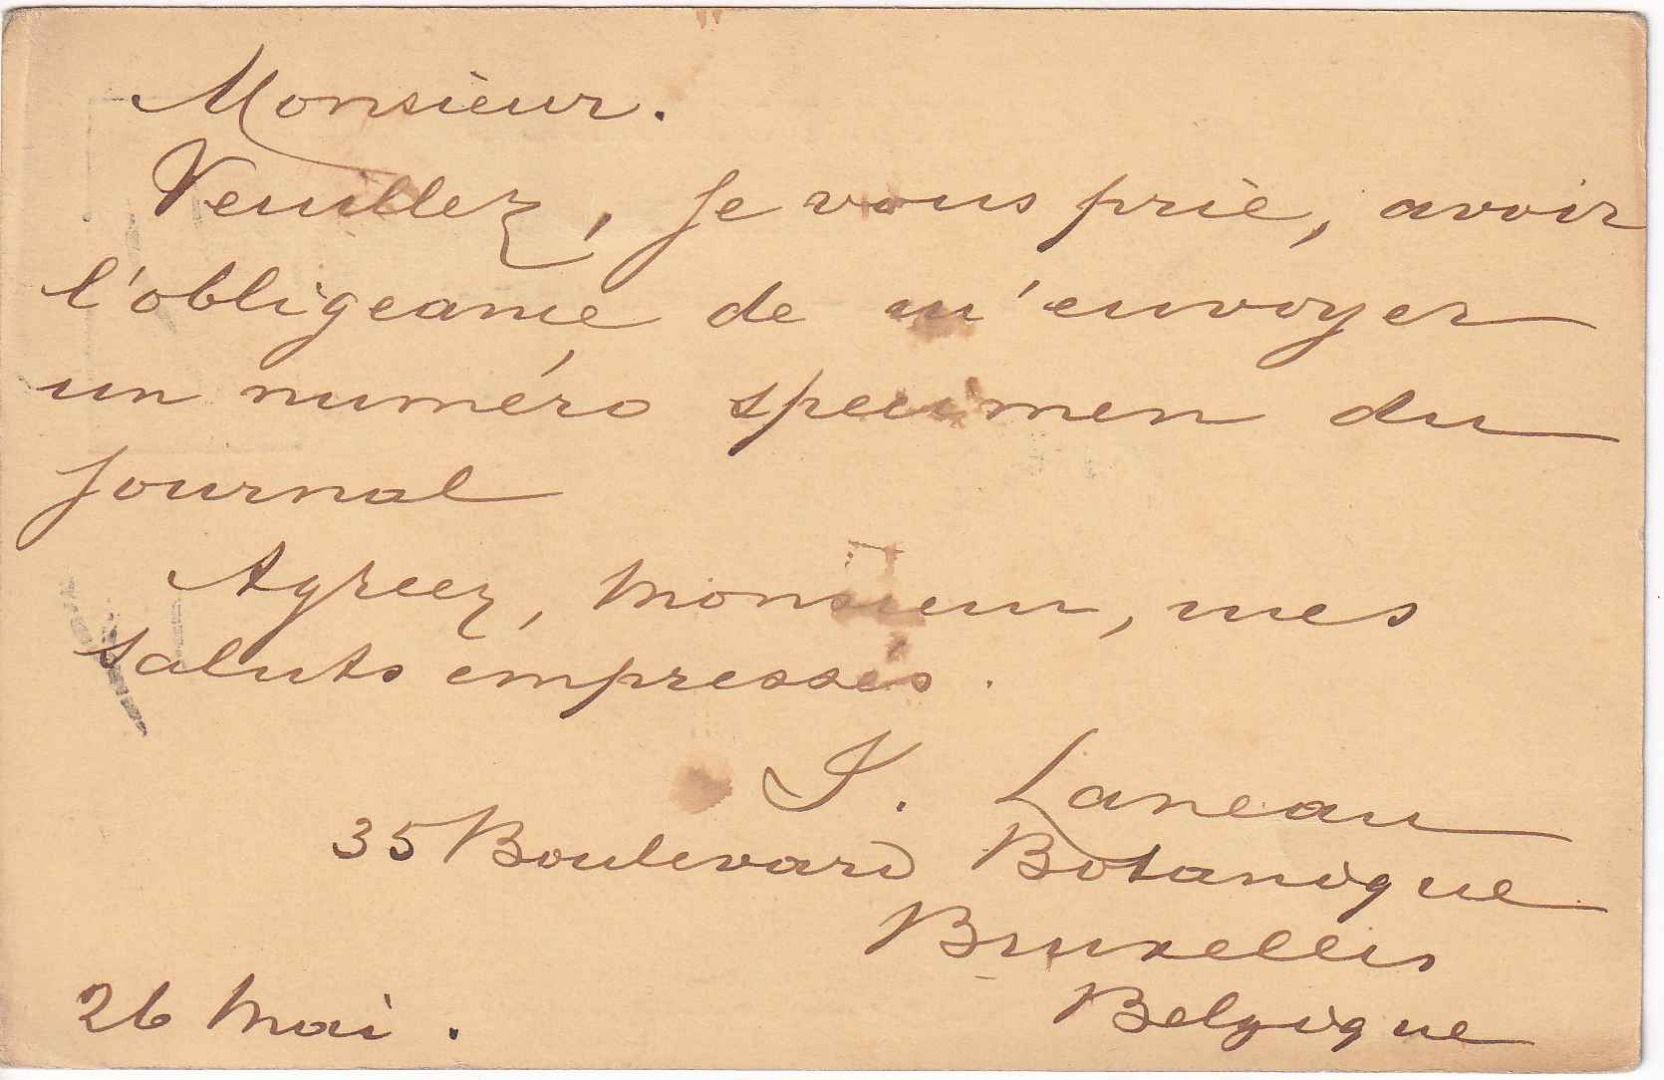 Monsieur.
Veuillez, je vous prie, avoir
l'obligeance de m'envoyer
un numéro specimen du
journal
Agreez, Monsieur, mes
saluts empressés.
J. Laneau
35 Boulevard Botanique
Bruxelles
Belgique
26 Mai.